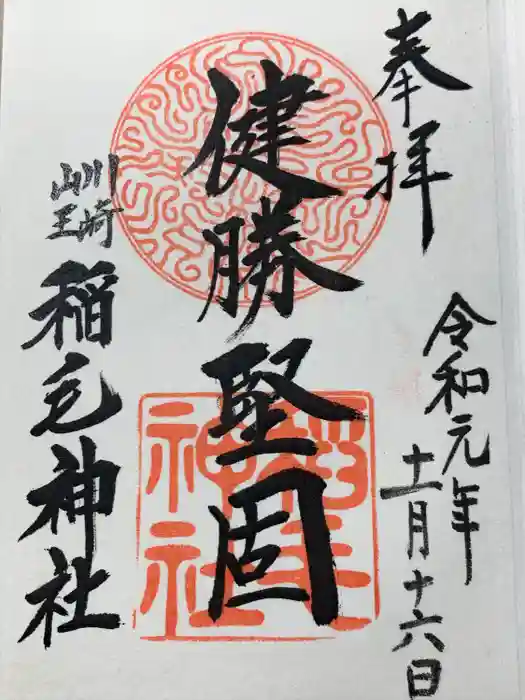 奉拝
令和元年
十一月十六日
健勝堅固
川崎
山王
稲毛神社
稲毛
神社